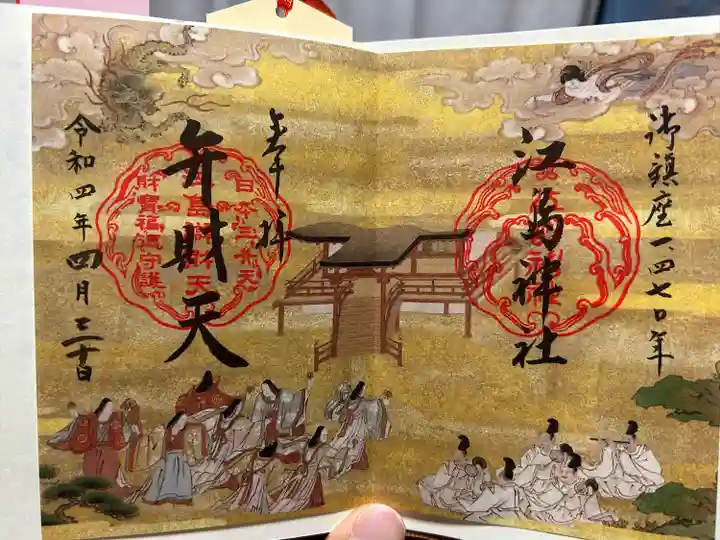 御鎮座一、四七〇年
江島神社
奉拝
弁財天
令和四年四月三十日
日本三弁天
江島弁財天
財寶福徳守護